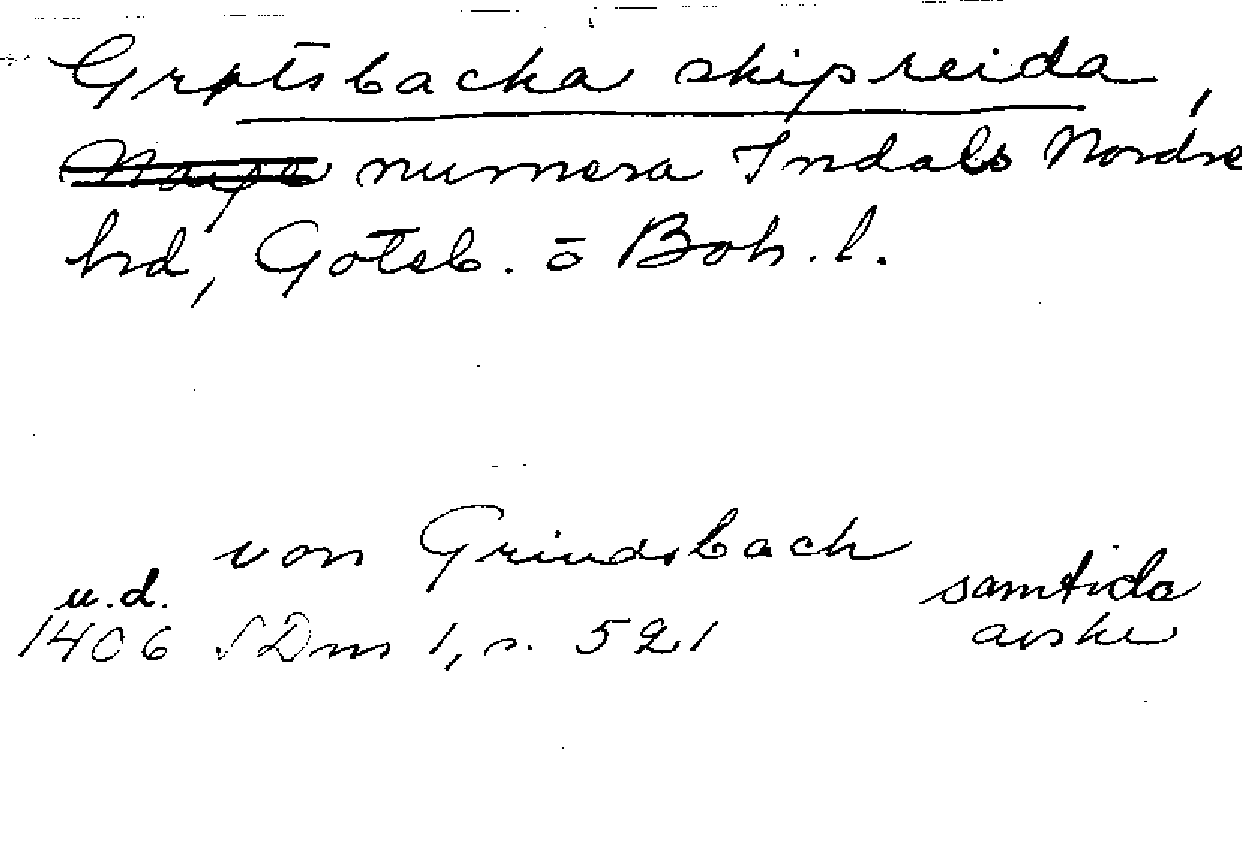 Grøtsbacka skipreida,
numera Indals Nordre
hrd, Göteb. o Boh. l.
von Grindsbach
u.d. samtida
1406 SDns 1, s. 521 avskr